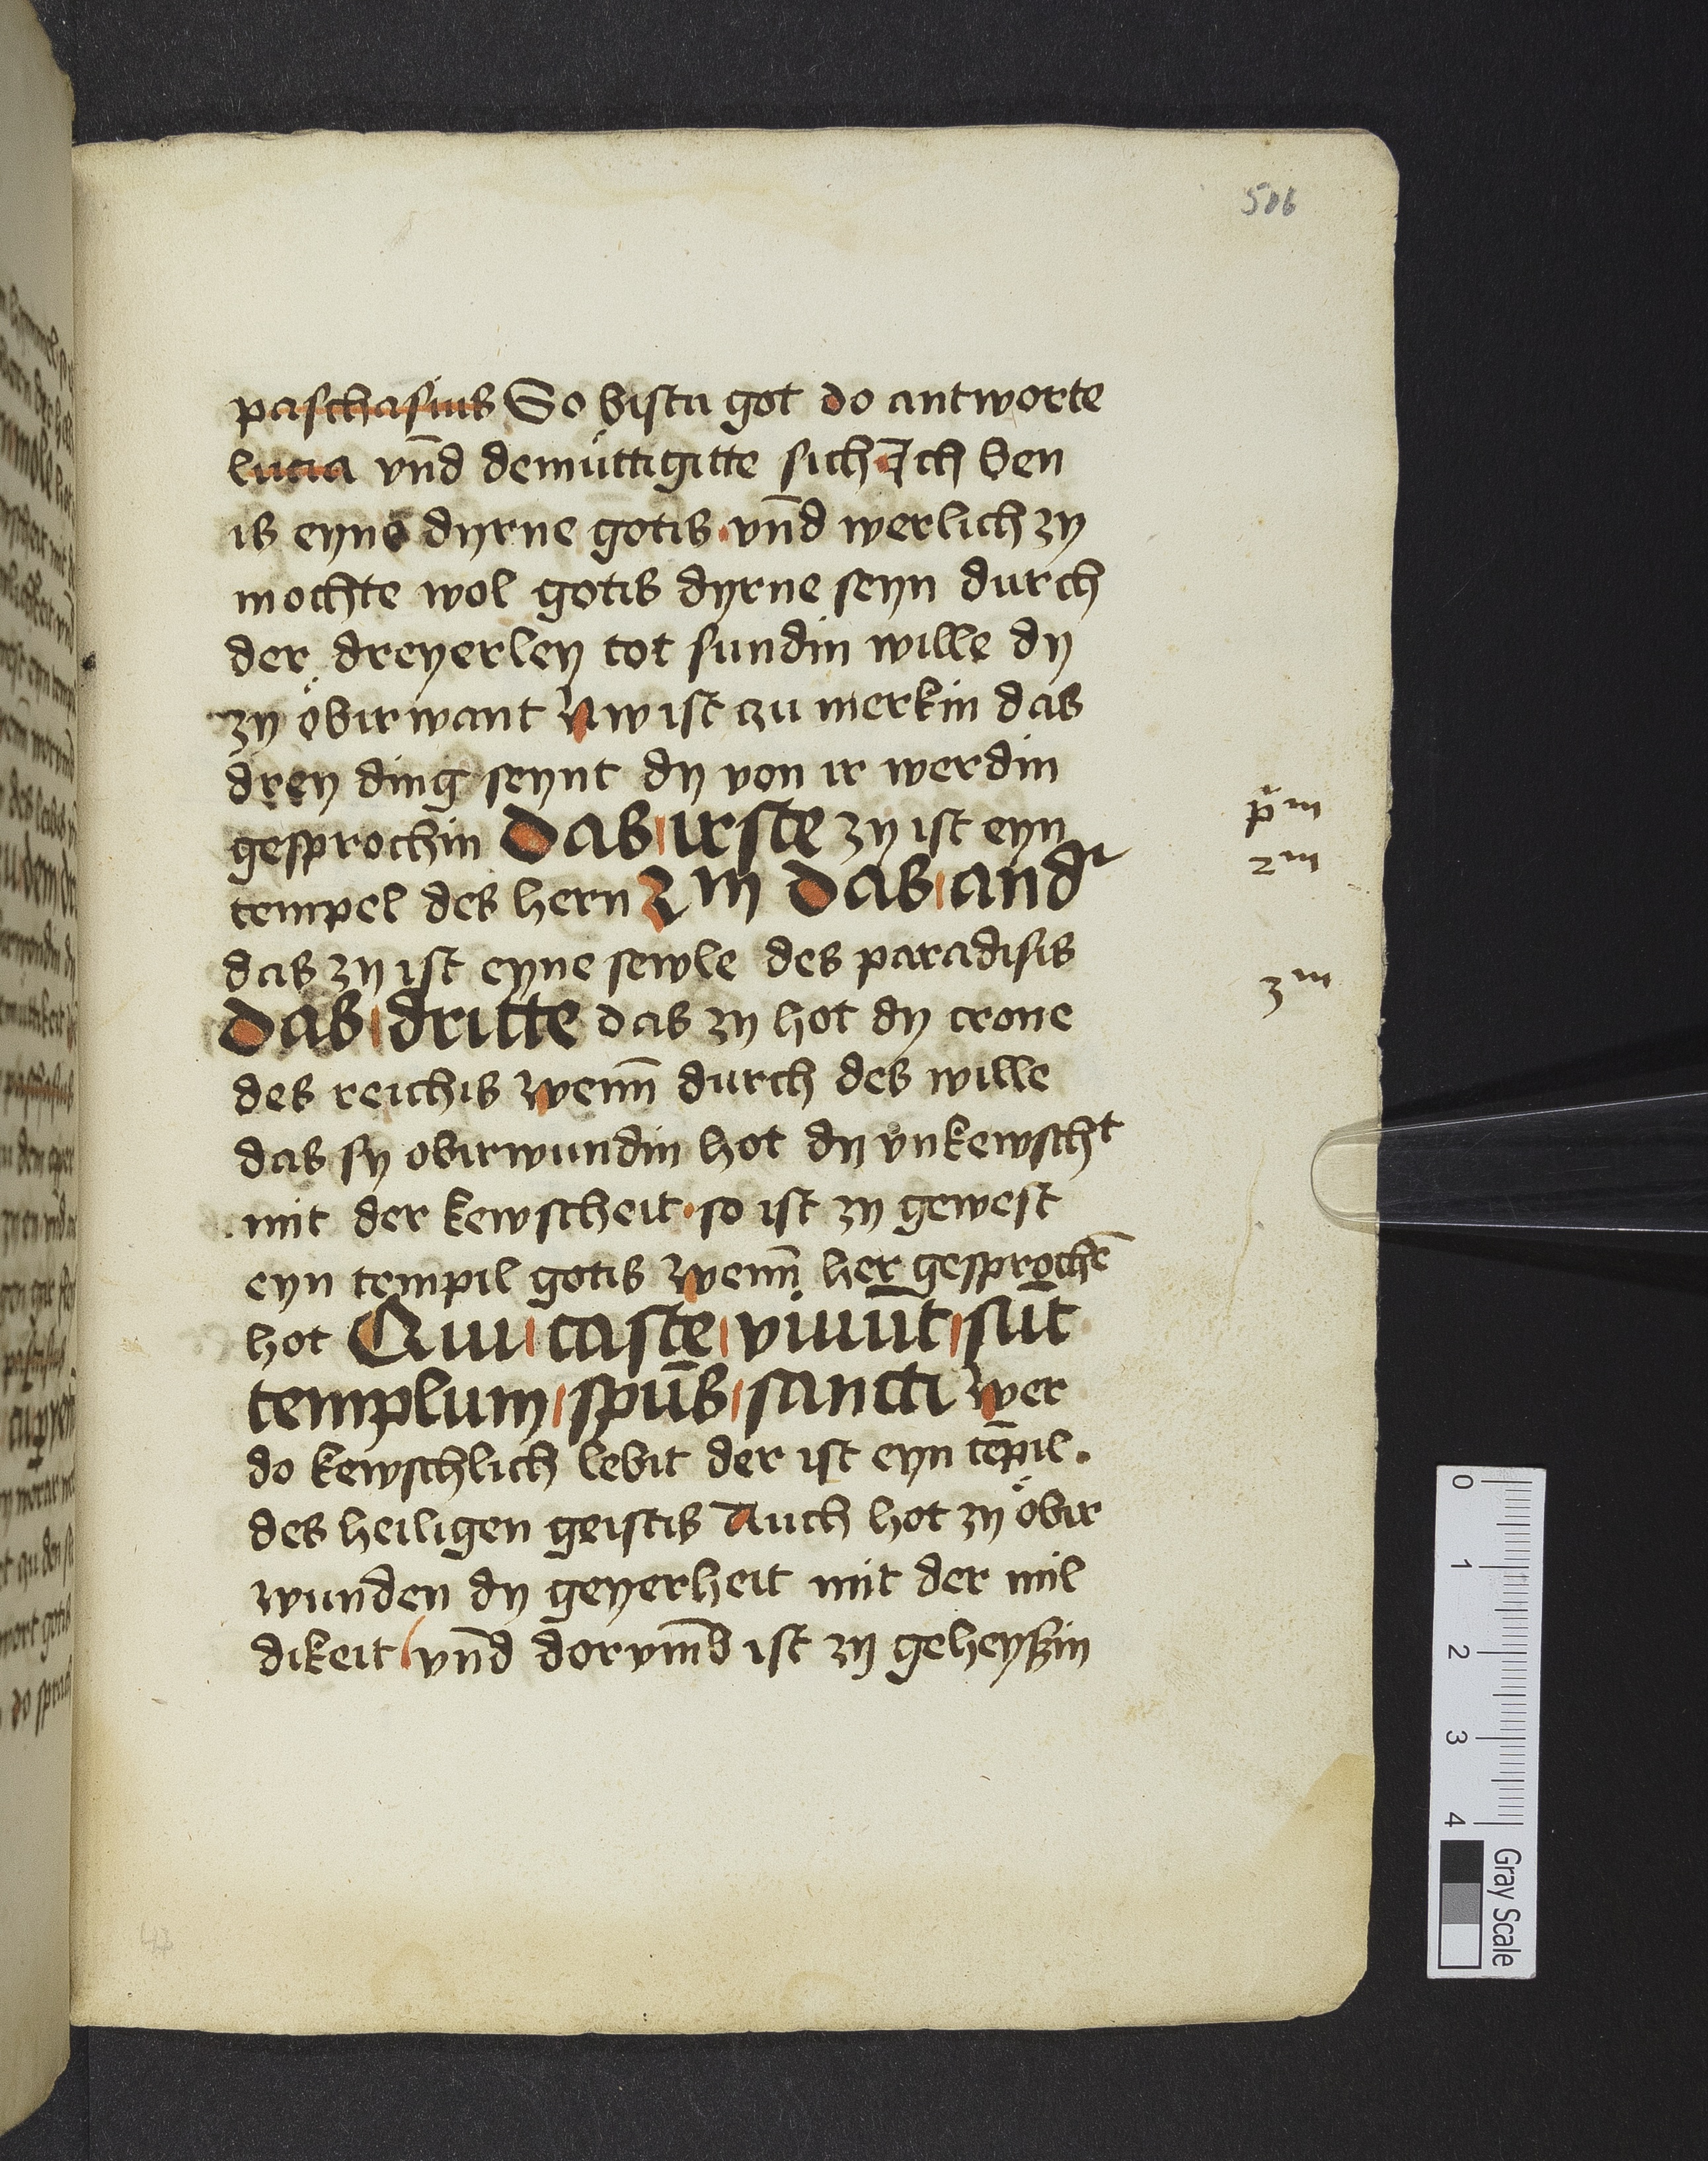 506
paschasius So bistu got do antworte
lucia vn̄d demüttigitte sich Ich ben
is eyne dyrne gotis · vn̄d werlich zy
mochte wol gotis dyrne seyn durch
der dreyerley tot sundin wille dy
zy öbirwant Nw ist zu merkin das
drey ding seynt dy von ir werdin
gesprochin Das irste zy ist eyn
pͥm
tempel des hern 2m Das andr
2m
das zy ist eyne sewle des paradisis
3m
Das dritte das zy hot dy crone
des reichis Wenn̄ durch des wille
das sy obirwundin hot dy vnkewscht
mit der kewscheit · so ist zy gewest
eyn tempil gotis Wenn̄ her gesprochē
hot Qui caste viuūt sūt
templum spūs sancti Wer
do kewschlich lebit der ist eyn tēpil .
des heiligen geistis Auch hot zy öbir
wunden dy geyerheit mit der mil
dikeit vn̄d dorvm̄b ist zy geheyszin